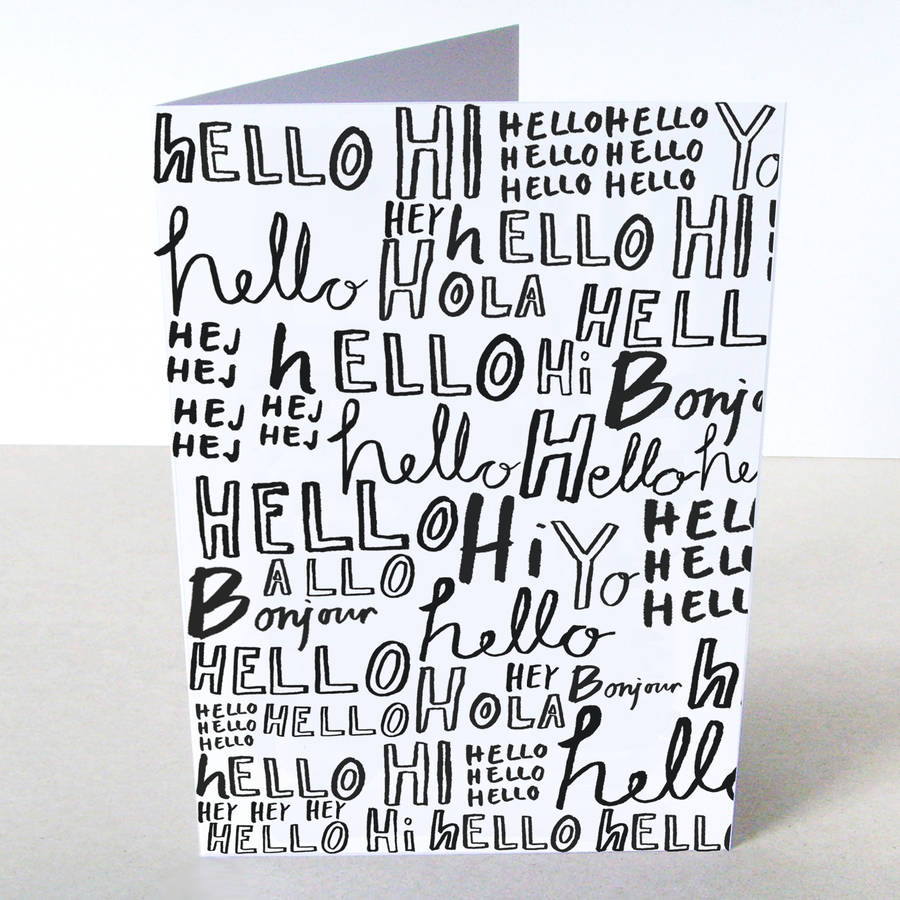 hELLO HI HELLO HELLO Yo
HELLO HELLO
HELLO HELLO
hello HEY hELLO HI!
HOLA HELL
HEJ
HEJ hELLO Hi Bonjo
HEJ HEJ
HEJ HEJ hello Hello he
HELLO Hi Yo HELL
HELL
HELL
ALLO
Bonjour hello
HELLO HOLA HEY Bonjour h
HELLO HELLO
HELLO
HELLO
hELLO HI HELLO hello
HELLO
HELLO
HEY HEY HEY
HELLO Hi hELLO hELLO